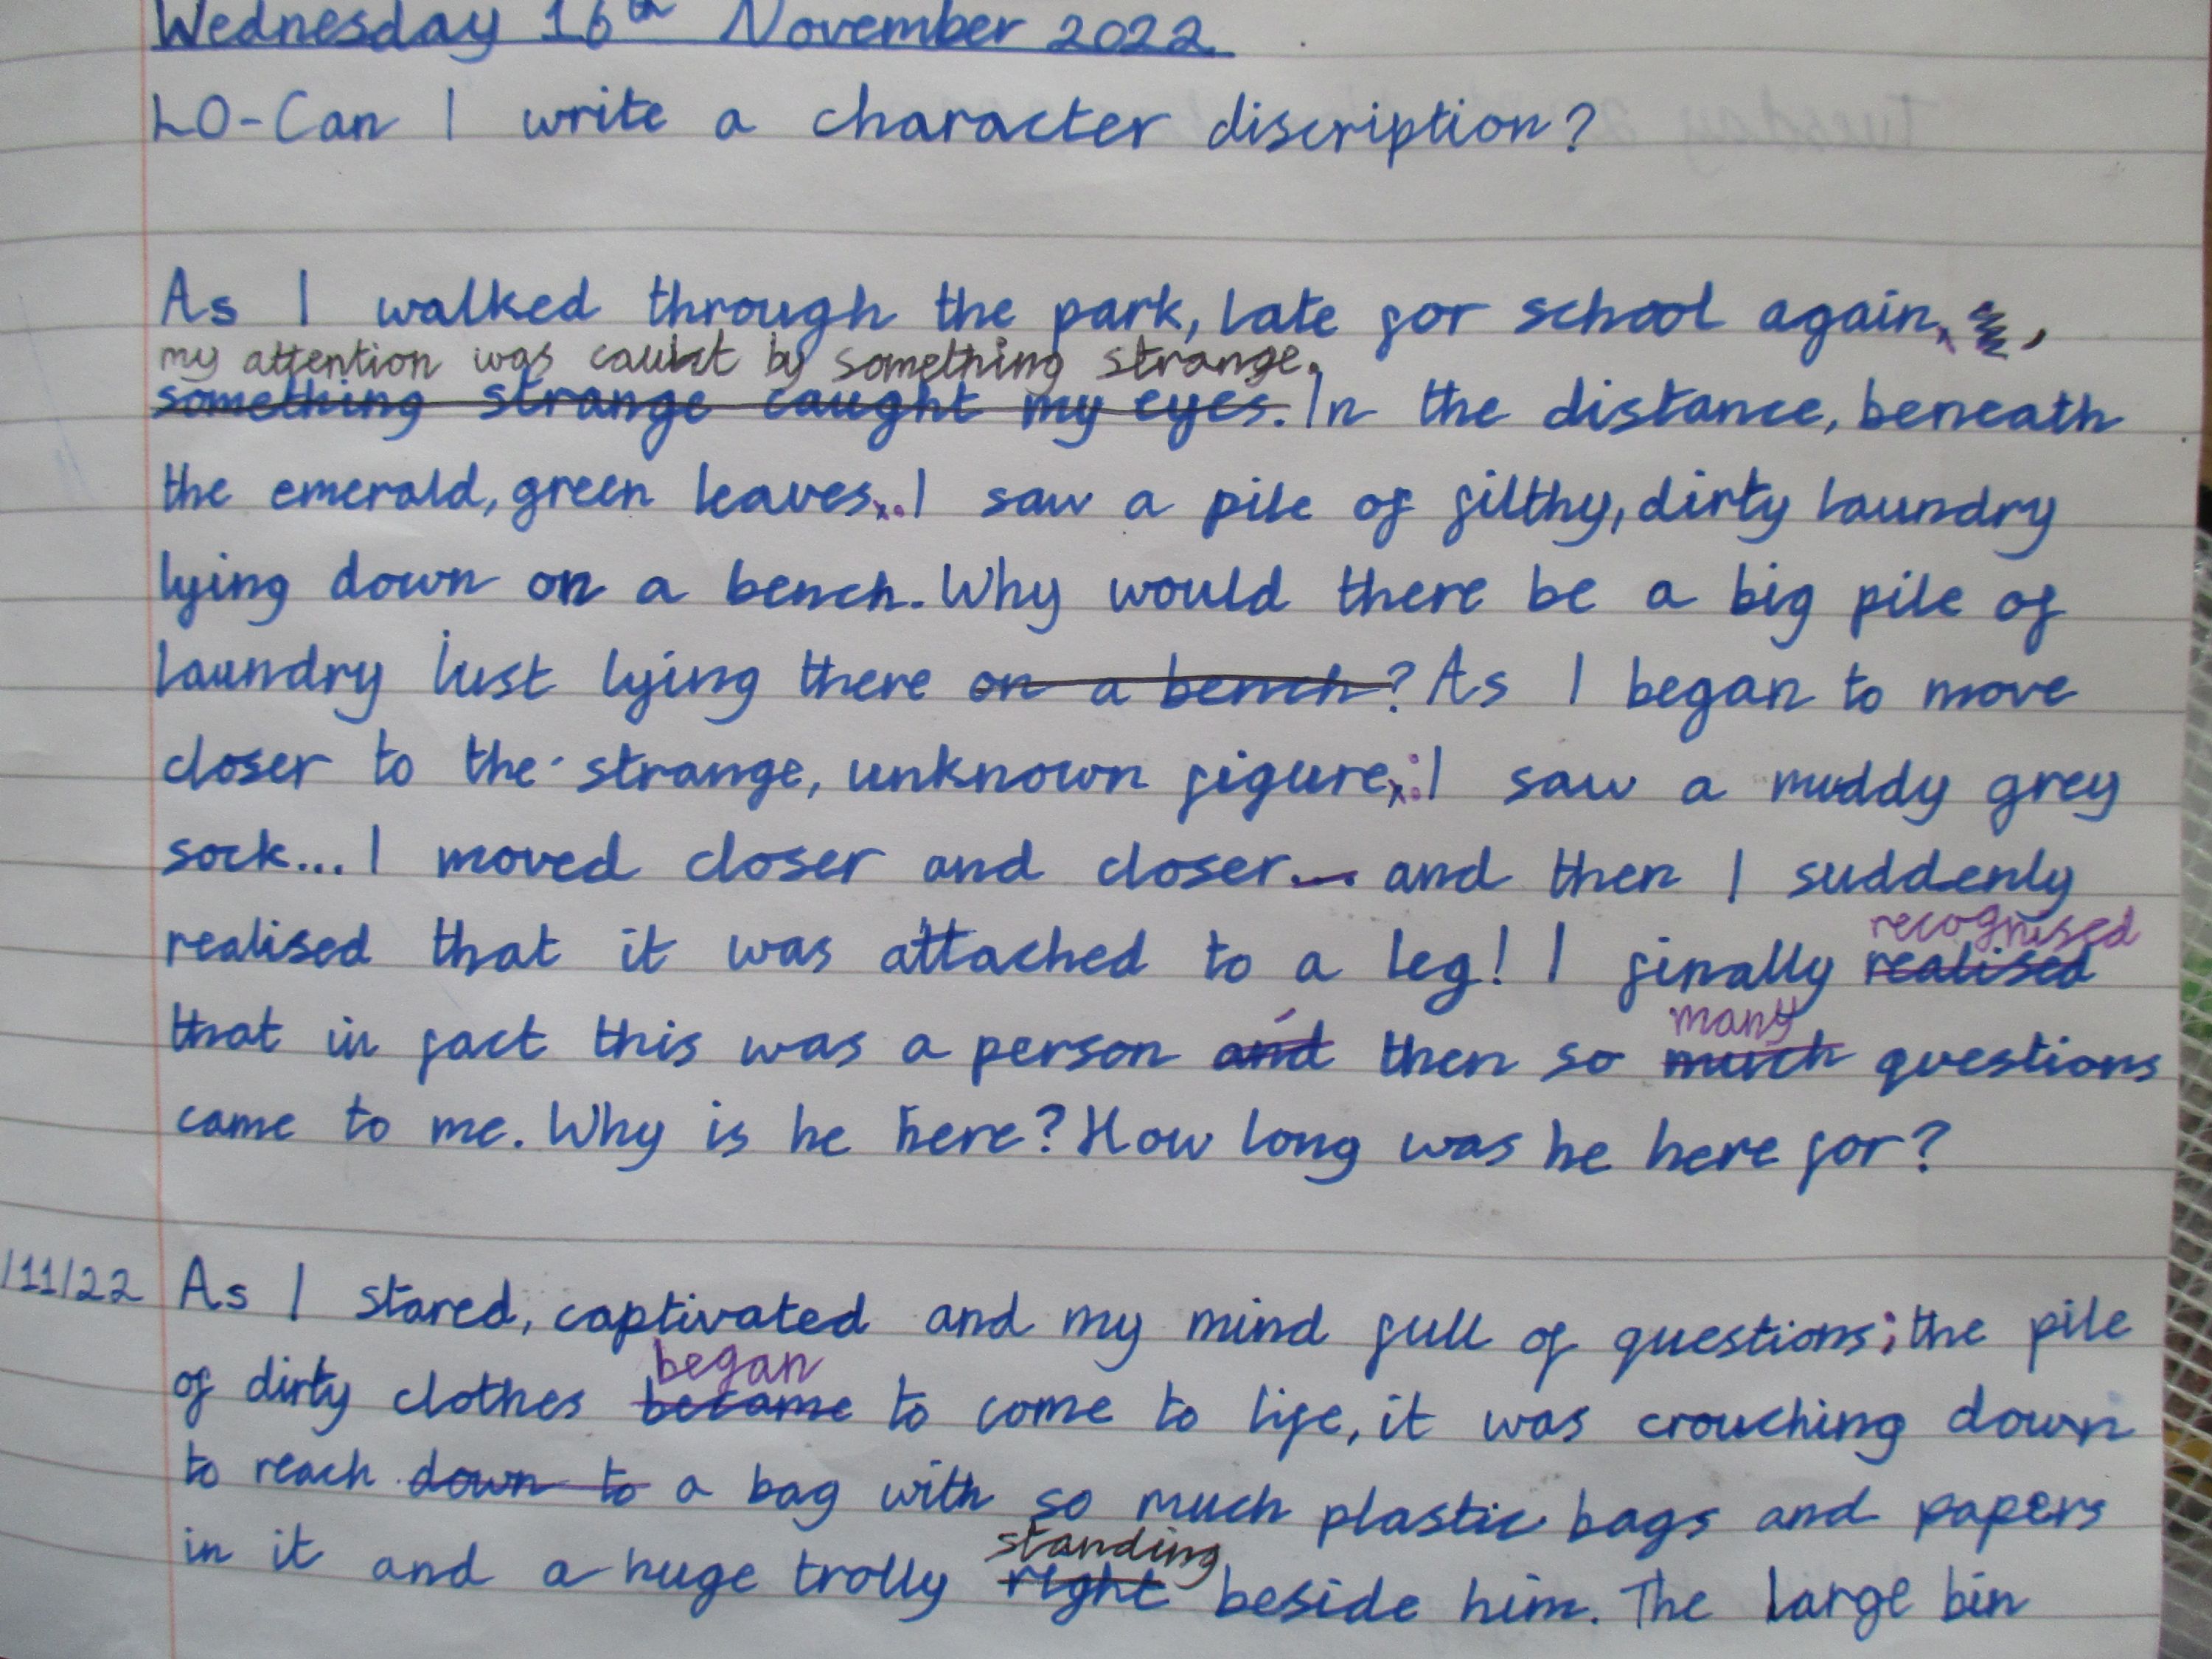 Wednesday 16th November 2022
LO-Can I write a character discription?
As I walked through the park, late for school again,
my attention was caught by something strange.
something strange caught my eyes. In the distance, beneath
the emerald, green leaves... I saw a pile of filthy, dirty laundry
lying down on a bench. Why would there be a big pile of
laundry just lying there on a bench? As I began to move
closer to the strange, unknown figure; I saw a muddy grey
sock... I moved closer and closer... and then I suddenly
recognised
realised that it was attached to a leg! I finally realised
many
that in fact this was a person and then so much questions
came to me. Why is he here? How long was he here for?
/11/22 As I stared, captivated and my mind full of questions; the pile
began
of dirty clothes became to come to life, it was crouching down
to reach down to a bag with so much plastic bags and papers
standing
in it and a huge trolly right beside him. The large bin